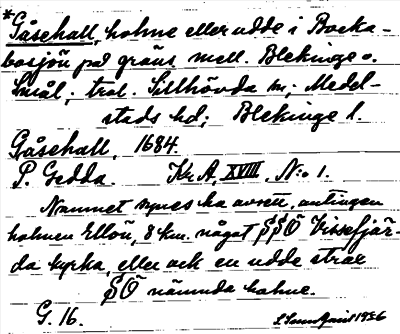 *Gåsehall, holme eller udde i Bocka-
bosjön på gräns mell. Blekinge o.
Smål.; trol. Sillhövda sn, Medel-
stads hd; Blekinge l.
Gåsehall, 1684.
P. Gedda. Kr. A. XVIII. N:o 1.
Namnet synes ha avsett, antingen
holmen Ellön, 8 km. något SSÖ Vissefjär-
da kyrka, eller ock en udde strax
SÖ nämnda holme.
G. 16. 1926